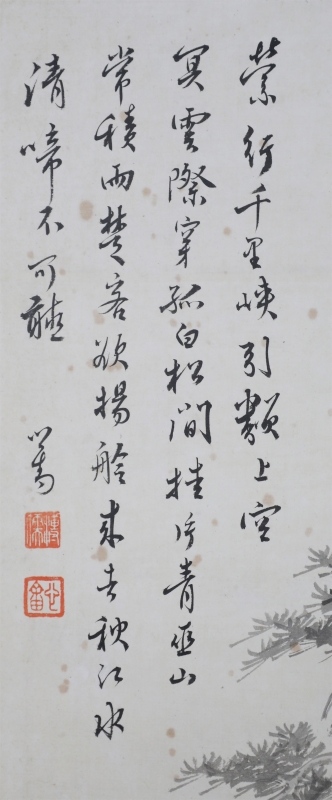 縈紆千里峽引類上空
冥雲際穿孤白松間挂片青巫山
常積雨楚客欲揚舲來去秋江水
清啼不可聽
心畬
溥儒
心畬